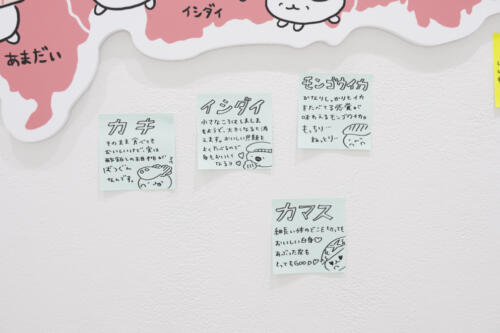 あまだい
イシダイ
カキ
そのまま食べても
おいしいけど、実は
酢飯との相性が
ばつぐん
なんです。
イシダイ
小さなころはしましま
もようで、大きくなると消
えます。おいしい
をたべるので
身もおいしく
なるヨ
モンゴウイカ
かなりしっかりもイカ
またべてる感食。が
味わえるモンゴウイカ。
もっちり〜
ねっとり〜
カマス
細長い体のどこを切っても
おいしい白身♡
あぶった皮も
とってもGOOD♡